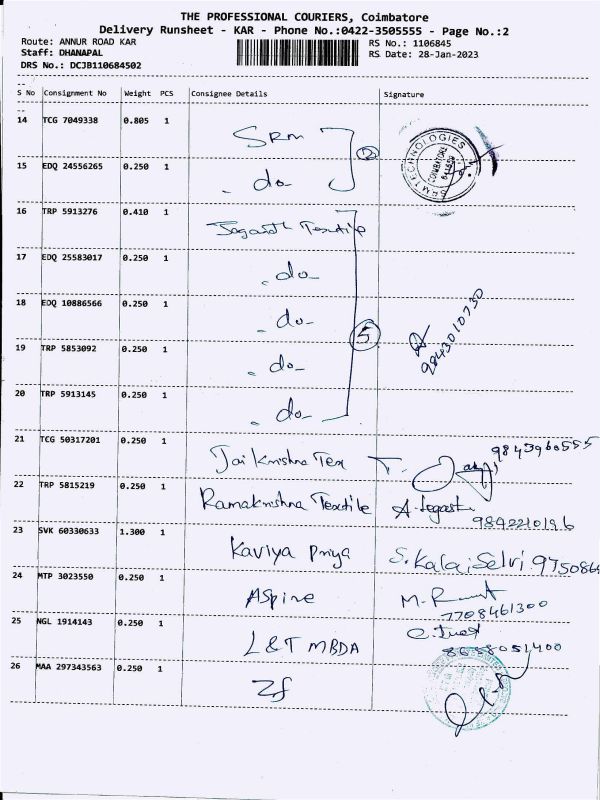 THE PROFESSIONAL COURIERS, Coimbatore
Delivery Runsheet - KAR - Phone No.:0422-3505555 - Page No.:2
Route: ANNUR ROAD KAR
Staff: DHANAPAL
DRS No.: DCJB110684502
RS No.: 1106845
RS Date: 28-Jan-2023
S No Consignment No Weight PCS Consignee Details Signature
14 TCG 7049338 0.805 1 SRM
15 EDQ 24556265 0.250 1 - do -
TECHNOLOGIES
COIMBATORE
16 TRP 5913276 0.410 1 Textile
17 EDQ 25583017 0.250 1 - do -
18 EDQ 10886566 0.250 1 - do -
5
9843010730
19 TRP 5853092 0.250 1 - do -
20 TRP 5913145 0.250 1 - do -
21 TCG 50317201 0.250 1 Jai Krishna Tex 9843960555
22 TRP 5815219 0.250 1 Ramakrishna Textile 9842210196
23 SVK 60330633 1.300 1 Kaviya Priya S. Kalai Selvi 9750864
24 MTP 3023550 0.250 1 ASpire 7708461300
25 NGL 1914143 0.250 1 L&T MBDA
26 MAA 297343563 0.250 1 Zf